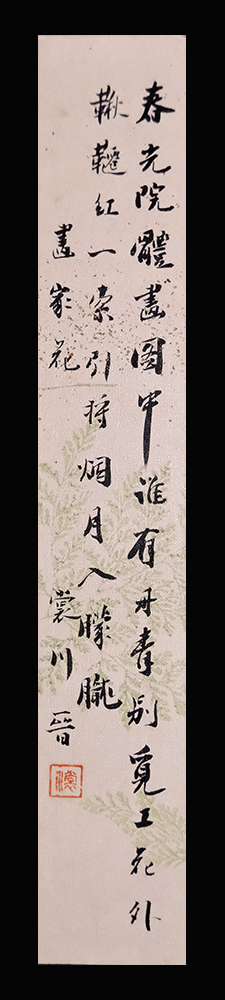 春光院體畫圖中誰有丹青別覓工花外
鞦韆紅一索引將烟月入朦朧
畫家花
裳川 晉